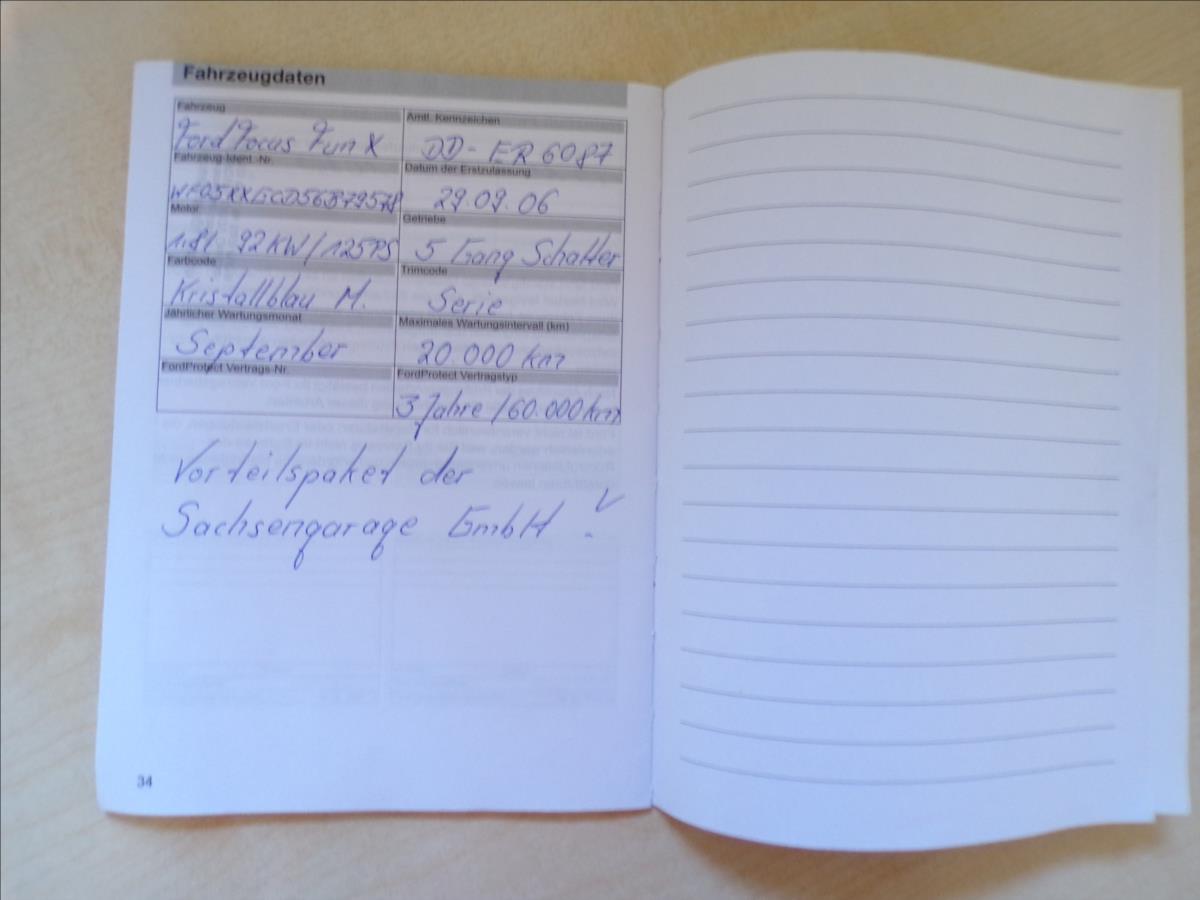 Fahrzeugdaten
Fahrzeug Amtl. Kennzeichen
Ford Focus Fun X DD - ER 6087
Fahrzeug-Ident.-Nr. Datum der Erstzulassung
29.09.06
Motor Getriebe
1.8l 92KW/125PS 5 Gang Schalter
Farbcode Trimcode
Kristallblau M. Serie
Jährlicher Wartungsmonat Maximales Wartungsintervall (km)
September 20.000 km
FordProtect Vertrags-Nr. FordProtect Vertragstyp
3 Jahre/60.000km
Vorteilspaket der
Sachsengarage GmbH
34